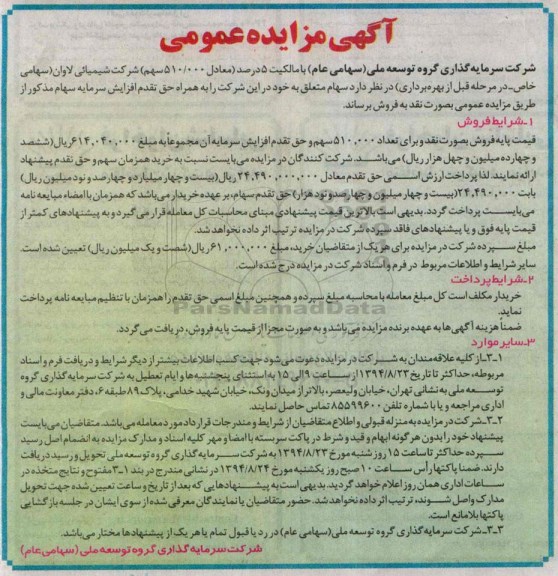 آگهی مزایده عمومی
شرکت سرمایه گذاری گروه توسعه ملی (سهامی عام) با مالکیت ۵ درصد (معادل ۵۱۰/۰۰۰ سهم) شرکت شیمیائی لاوان (سهامی
خاص-در مرحله قبل از بهره برداری) در نظر دارد سهام متعلق به خود در این شرکت را به همراه حق تقدم افزایش سرمایه سهام مذکور از
طریق مزایده عمومی بصورت نقد به فروش برساند.
۱-شرایط فروش
قیمت پایه فروش بصورت نقد و برای تعداد ۵۱۰,۰۰۰ سهم و حق تقدم افزایش سرمایه آن مجموعاً به مبلغ ۶۱۴,۰۴۰,۰۰۰ ریال (ششصد
و چهارده میلیون و چهل هزار ریال) می باشد. شرکت کنندگان در مزایده می بایست نسبت به خرید همزمان سهم و حق تقدم پیشنهاد
ارائه نمایند. لذا پرداخت ارزش اسمی حق تقدم معادل ۲۴,۴۹۰,۰۰۰,۰۰۰ ریال (بیست و چهار میلیارد و چهارصد و نود میلیون ریال)
بابت ۲۴,۴۹۰,۰۰۰ (بیست و چهار میلیون و چهارصد و نود هزار) حق تقدم سهام، بر عهده خریدار می باشد که همزمان با امضاء مبایعه نامه
می بایست پرداخت گردد. بدیهی است بالاترین قیمت پیشنهادی مبنای محاسبات کل معامله قرار می گیرد و به پیشنهادهای کمتر از
قیمت پایه فوق و یا پیشنهادهای فاقد سپرده شرکت در مزایده ترتیب اثر داده نخواهد شد.
مبلغ سپرده شرکت در مزایده برای هر یک از متقاضیان خرید، مبلغ ۶۱,۰۰۰,۰۰۰ ریال (شصت و یک میلیون ریال) تعیین شده است.
سایر شرایط و اطلاعات مربوط در فرم و اسناد شرکت در مزایده درج شده است.
۲-شرایط پرداخت
خریدار مکلف است کل مبلغ معامله با محاسبه مبلغ سپرده و همچنین مبلغ اسمی حق تقدم را همزمان با تنظیم مبایعه نامه پرداخت
نماید.
ضمناً هزینه آگهی ها به عهده برنده مزایده می باشد و به صورت مجزا از قیمت پایه فروش، دریافت می گردد.
۳-سایر موارد
۳-۱-از کلیه علاقه مندان به شرکت در مزایده دعوت می شود جهت کسب اطلاعات بیشتر از دیگر شرایط و دریافت فرم و اسناد
مربوطه، حداکثر تا تاریخ ۱۳۹۴/۸/۲۳ از ساعت ۹ الی ۱۵ به استثنای پنجشنبه ها و ایام تعطیل به شرکت سرمایه گذاری گروه
توسعه ملی به نشانی تهران، خیابان ولیعصر، بالاتر از میدان ونک، خیابان شهید خدامی، پلاک ۸۹ طبقه ۶، دفتر معاونت مالی و
اداری مراجعه و یا با شماره تلفن ۸۵۵۹۹۶۰۰ تماس حاصل نمایند.
۳-۲-شرکت در مزایده به منزله قبولی و اطلاع متقاضیان از شرایط و مندرجات قرارداد مورد معامله می باشد. متقاضیان می بایست
پیشنهاد خود را بدون هر گونه ابهام و قید و شرط در پاکت سربسته با امضا و مهر کلیه اسناد و مدارک مزایده به انضمام اصل رسید
سپرده حداکثر تا ساعت ۱۵ روز شنبه مورخ ۱۳۹۴/۸/۲۳ به شرکت سرمایه گذاری گروه توسعه ملی تحویل و رسید دریافت
دارند. ضمنا پاکتها رأس ساعت ۱۰ صبح روز یکشنبه مورخ ۱۳۹۴/۸/۲۴ در نشانی مندرج در بند ۳-۱ مفتوح و نتایج متخذه در
ساعات اداری همان روز اعلام خواهد گردید. بدیهی است به پیشنهادهایی که بعد از تاریخ و ساعت تعیین شده جهت تحویل
مدارک واصل شوند، ترتیب اثر داده نخواهد شد. حضور متقاضیان یا نمایندگان معرفی شده از سوی ایشان در جلسه بازگشایی
پاکتها بلامانع است.
۳-۳-شرکت سرمایه گذاری گروه توسعه ملی (سهامی عام) در رد یا قبول تمام یا هر یک از پیشنهادها مختار می باشد.
شرکت سرمایه گذاری گروه توسعه ملی (سهامی عام)
ParsNamadData